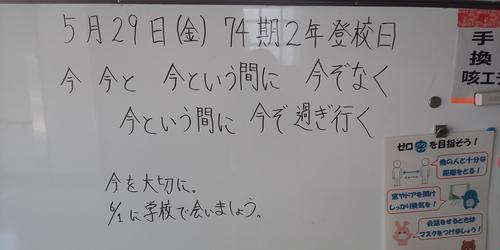 5月29日(金) 74期2年登校日
今 今と 今という間に 今ぞなく
今という間に 今ぞ過ぎ行く
今を大切に。
6/1に学校で会いましょう。
手
換
咳エチ
ゼロ密を目指そう！
他の人と十分な
距離をとる！
窓やドアを開け
しっかり換気を！
会話をするときは
マスクをつけましょう！